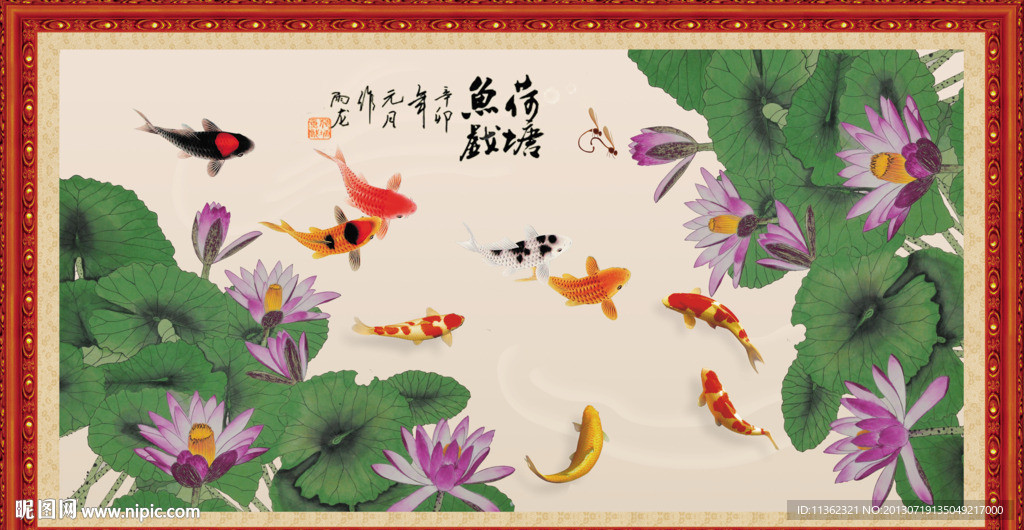 荷塘
魚戲
辛卯
年
元月
作
雨龙
昵图网 www.nipic.com
ID:11362321 NO:20130719135049217000